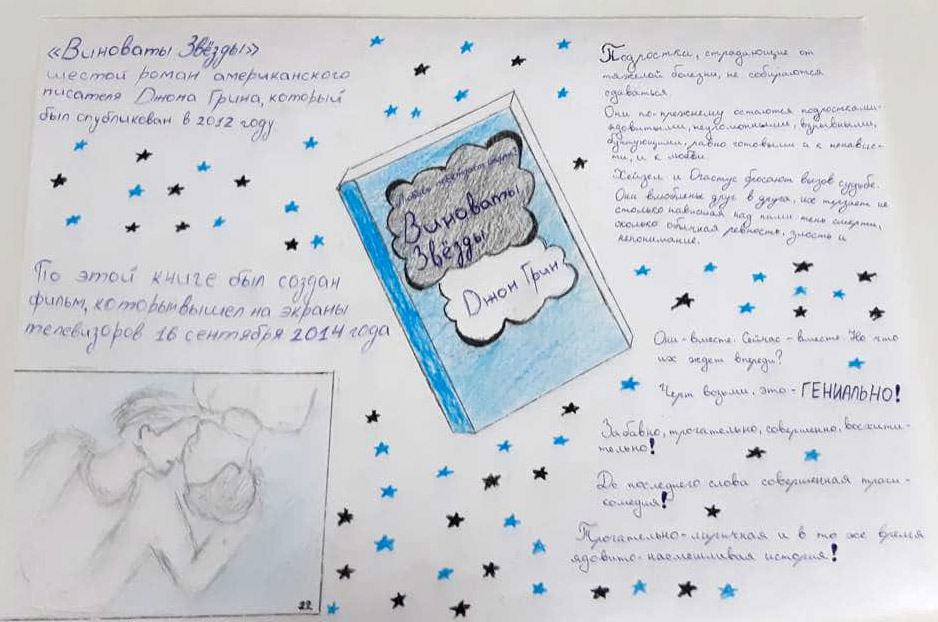 «Виноваты Звёзды»
шестой роман американского
писателя Джона Грина, который
был опубликован в 2012 году
По этой книге был создан
фильм, который вышел на экраны
телевизоров 16 сентября 2014 года
Виноваты
Звёзды
Джон Грин
Подростки, страдающие от
тяжелой болезни, не собираются
сдаваться.
Они по-прежнему остаются подростками-
ядовитыми, неугомонными, взрывными,
бунтующими, равно готовыми и к ненавис-
ти, и к любви.
Хейзел и Огастус бросают вызов судьбе.
Они влюблены друг в друга, их терзает не
столько нависшая над ними тень смерти,
сколько обычная ревность, злость и
непонимание.
Они - вместе. Сейчас - вместе. Но что
их ждет впереди?
Черт возьми, это - ГЕНИАЛЬНО!
Забавно, трогательно, совершенно, восхити-
тельно!
До последнего слова совершенная траги-
комедия!
Трогательно-лиричная и в то же время
ядовито-насмешливая история!
22